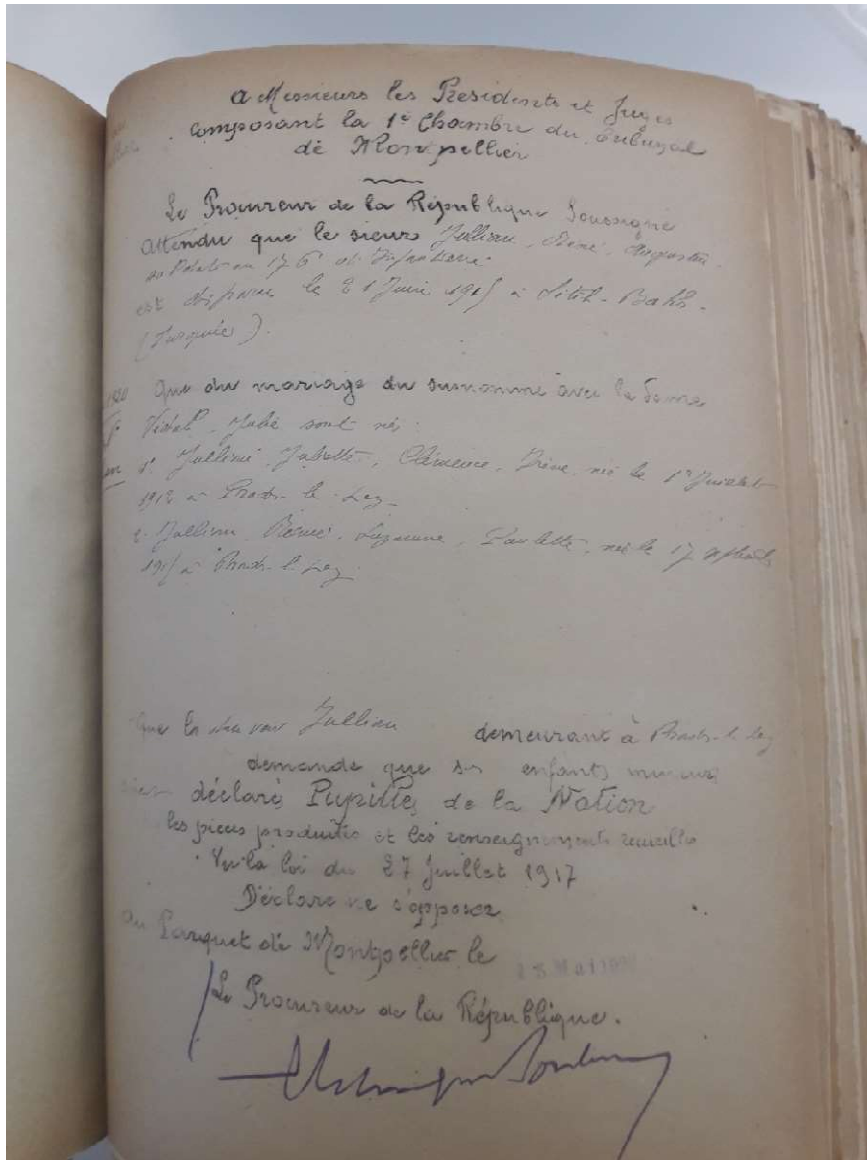 a Messieurs les Presidents et Juges
composant la 1e Chambre du Tribunal
de Montpellier
Le Procureur de la République Soussigné
Attendu que le sieur Jullian, René, Augustin
soldat au 176e d'Infanterie
est disparu le 21 Juin 1915 à Sedul-Bahr.
(Turquie).
Que du mariage du susnommé avec la Dame
Vidal, Julie sont nés:
1° Jullian, Juliette, Clémence, Irène, née le 1er Juillet
1912 à Prades-le-Lez
2° Jullian, Renée, Suzanne, Paulette, née le 17
1915 à Prades-le-Lez.
Que la veuve Jullian demeurant à Prades-le-Lez
demande que ses enfants mineurs
déclarés Pupilles de la Nation
les pièces produites et les renseignements recueillis
Vu la loi du 27 Juillet 1917
Déclare ne s'opposer
au Parquet de Montpellier le
Mai
Le Procureur de la République.